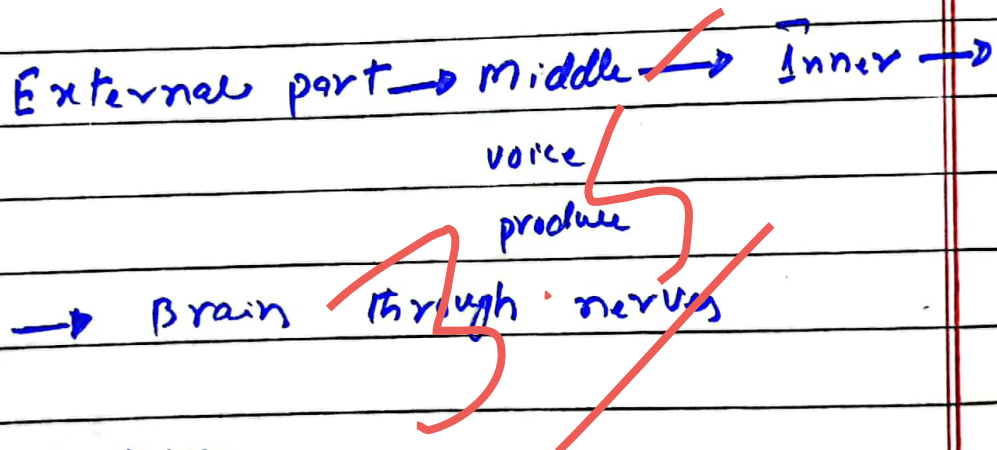 External part → Middle → Inner →
voice
produce
→ Brain through nerves
3.5